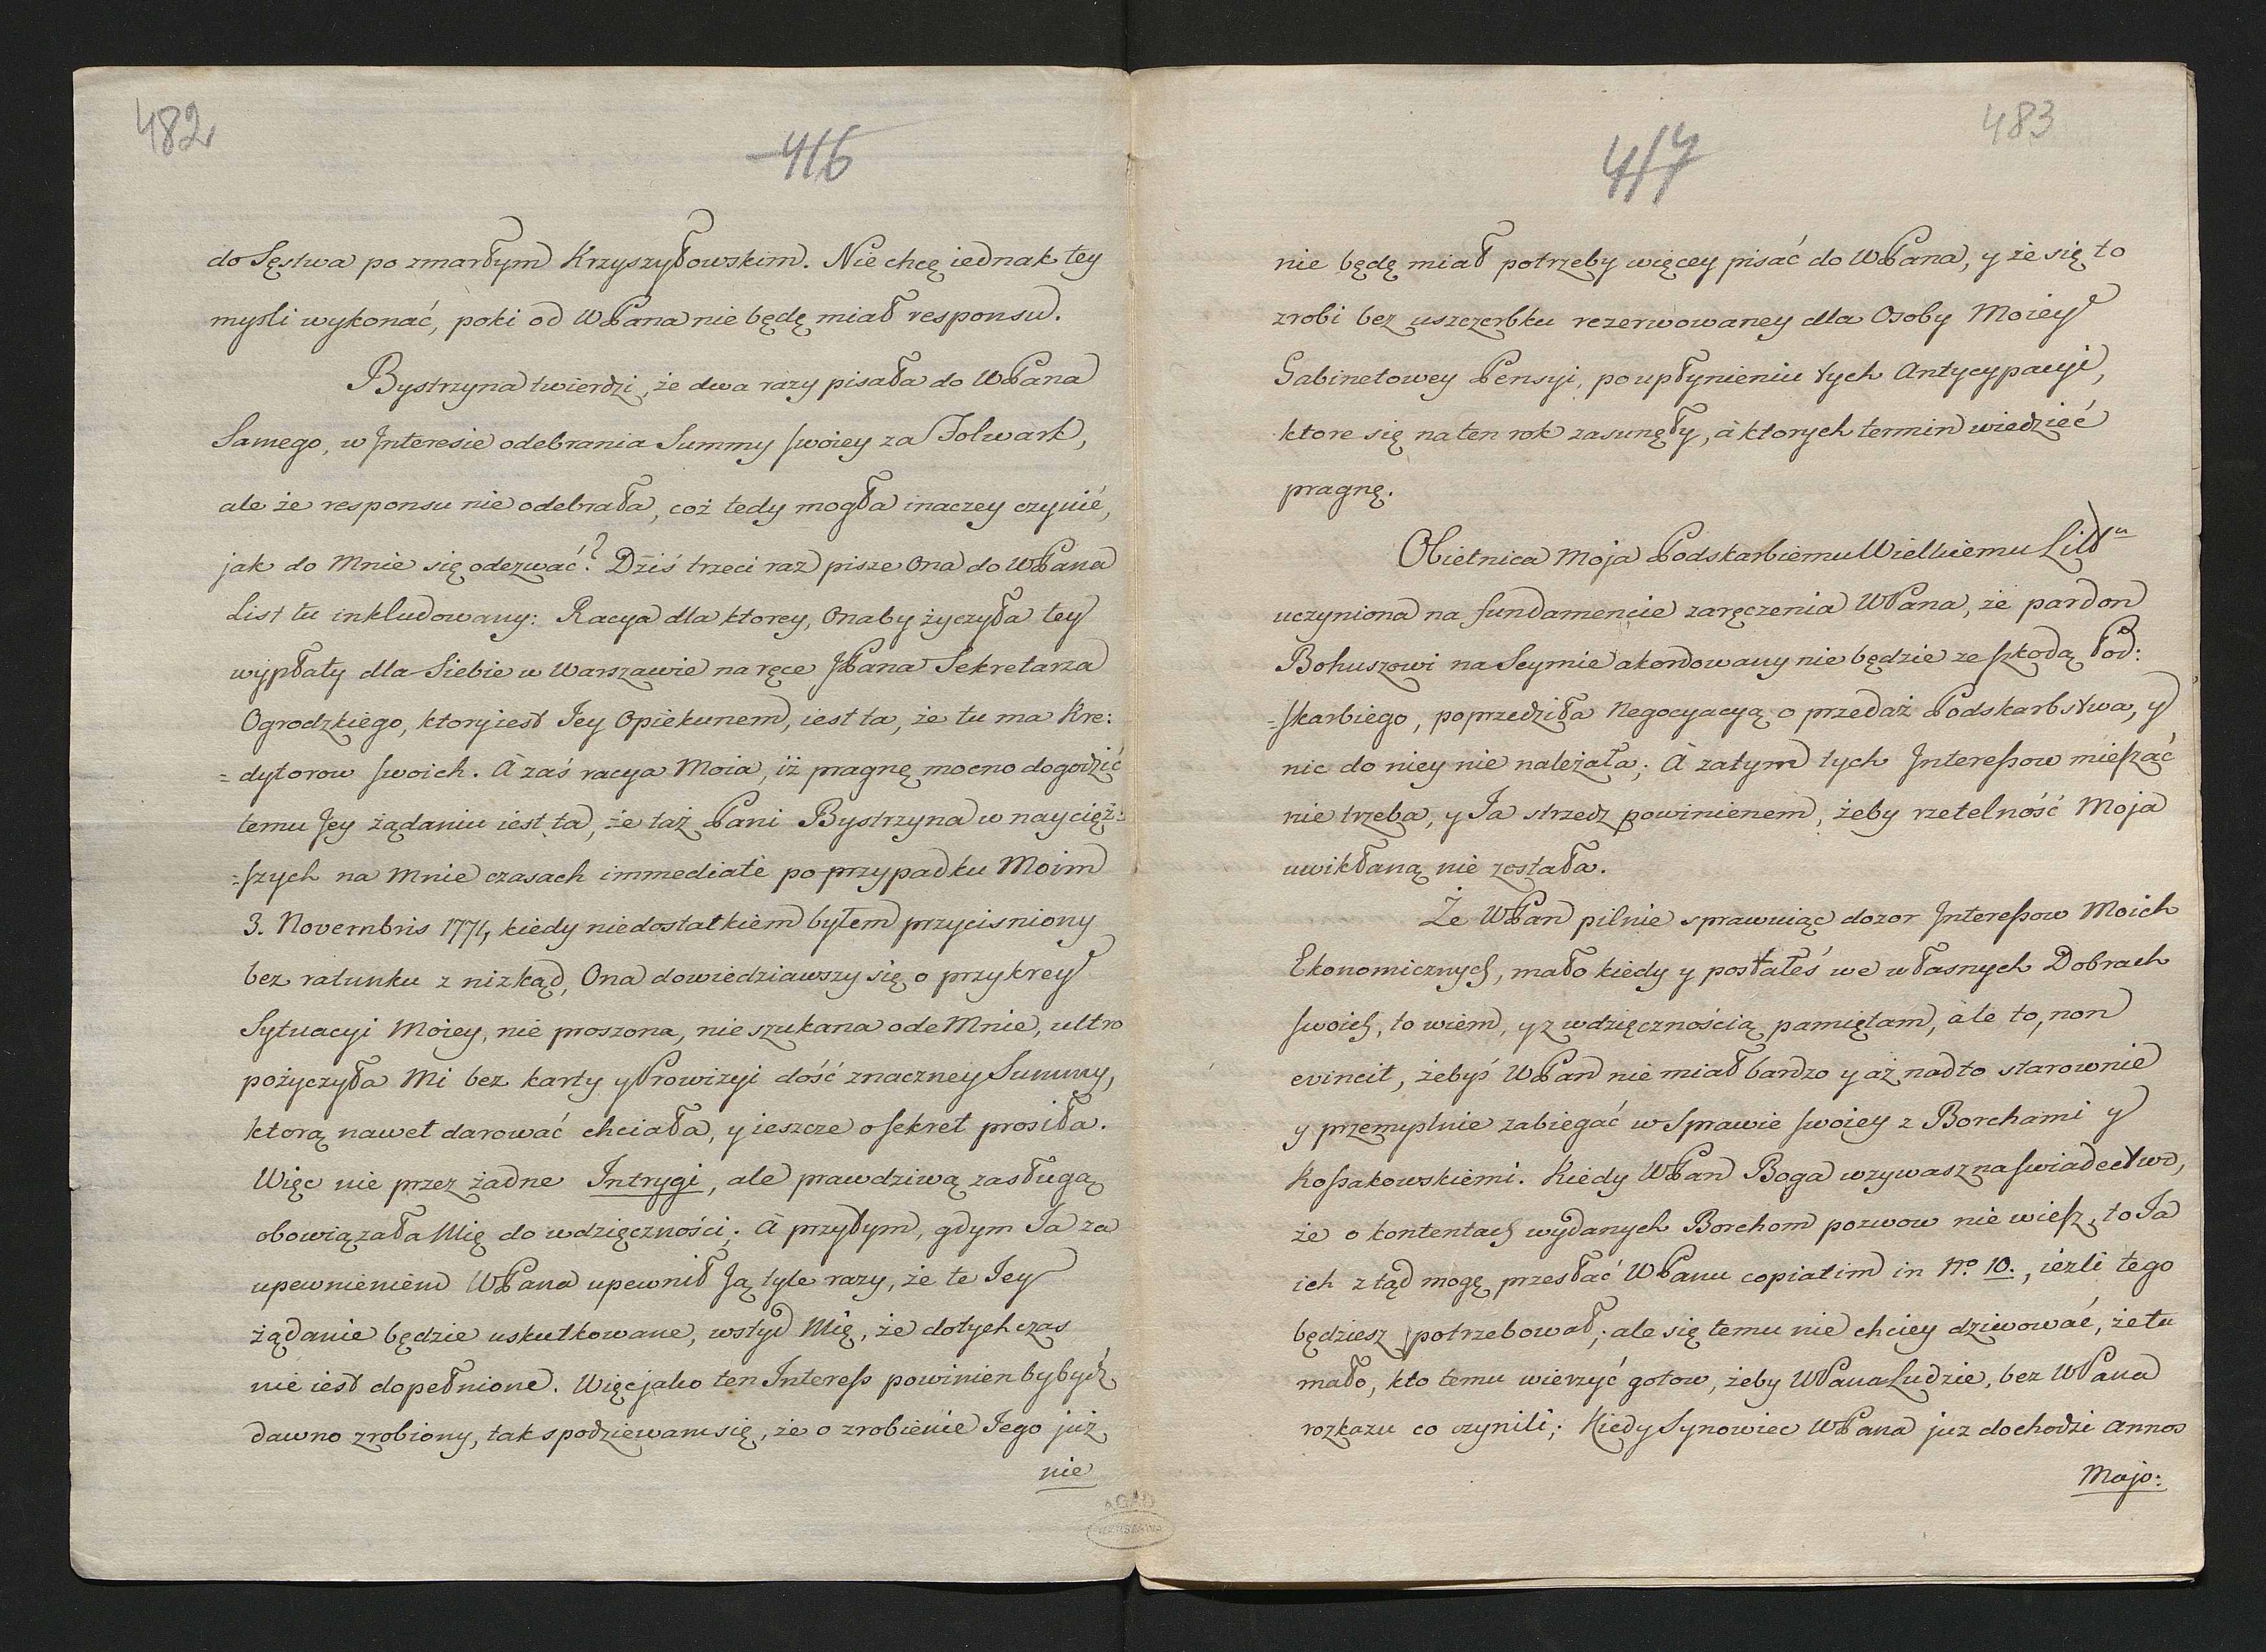 482
416
do Sęstwa po zmarłym Krzyszyłowskim. Nie chcę iednak tey
mysli wykonać, poki od WPana nie będę miał responsu.
Bystrzyna twierdzi, że dwa razy pisała do WPana
Samego, w Jnteresie odebrania Summy swoiey za Folwark,
ale że responsu nie odebrała, coż tedy mogła inaczey czynić,
jak do Mnie się odezwać? Dziś trzeci raz pisze Ona do WPana
List tu inkludowany: Racya dla ktorey, Onaby życzyła tey
wypłaty dla Siebie w Warszawie na ręce JPana Sekretarza
Ogrodzkiego, ktory iest Jey Opiekunem, iest ta, że tu ma Kre:
=dytorow swoich. A zaś racya Moia, iż pragnę mocno dogodzić
temu Jey żądaniu iest ta, że taż Pani Bystrzyna w naycięż:
=szych na Mnie czasach immediate po przypadku Moim
3. Novembris 1771, kiedy niedostatkiem byłem przycisniony
bez ratunku z nizkąd, Ona dowiedziawszy się o przykrey
Sytuacyi Moiey, nie proszona, nie szukana ode Mnie, ultro
pożyczyła Mi bez karty y Prowizyi dość znaczney Summy,
ktorą nawet darować chciała, y ieszcze o sekret prosiła.
Więc nie przez żadne Intrygi, ale prawdziwą zasługą
obowiązała Mię do wdzięczności; A przytym, gdym Ja za
upewnieniem WPana upewnił Ją tyle razy, że te Jey
żądanie będzie uskutkowane, wstyd Mię, że dotychczas
nie iest dopełnione. Więc jako ten Interess powinien by bydź
dawno zrobiony, tak spodziewam się, że o zrobienie Jego już
nie
AGAD
WARSZAWA
483
417
nie będę miał potrzeby więcey pisać do WPana, y że się to
zrobi bez uszczerbku rezerwowaney dla Osoby Moiey
Gabinetowey Pensyi, po upłynieniu tych Antycypacyi,
ktore się na ten rok zasunęły, a ktorych termin wiedzieć
pragnę.
Obietnica Moja Podskarbiemu Wielkiemu Litt
uczyniona na fundamencie zaręczenia WPana, że pardon
Bohuszowi na Seymie akordowany nie będzie ze szkodą Pod:
=skarbiego, poprzedziła Negocyacyą o przedaż Podskarbstwa, y
nic do niey nie należała; A zatym tych Jnteressow mieszać
nie trzeba, y Ja strzedz powinienem, żeby rzetelność Moja
uwikłaną nie została.
Że WPan pilnie sprawuiąc dozor Jnteressow Moich
Ekonomicznych, mało kiedy y postałeś we własnych Dobrach
swoich, to wiem, y z wdzięcznością pamiętam, ale to, non
evincit, żebyś WPan nie miał bardzo y aż nadto starownie
y przemyslnie zabiegać w Sprawie swoiey z Borchami y
Kossakowskiemi. Kiedy WPan Boga wzywasz na swiadectwo,
że o kontentach wydanych Borchom pozwow nie wiesz, to Ja
ich ztąd mogę przesłać WPanu copiatim in No. 10., ieżli tego
będziesz potrzebował; ale się temu nie chciey dziwować, że tu
mało, kto temu wierzyć gotow, żeby WPana Ludzie, bez WPana
rozkazu co czynili; Kiedy Synowiec WPana juz dochodzi annos
Majo: